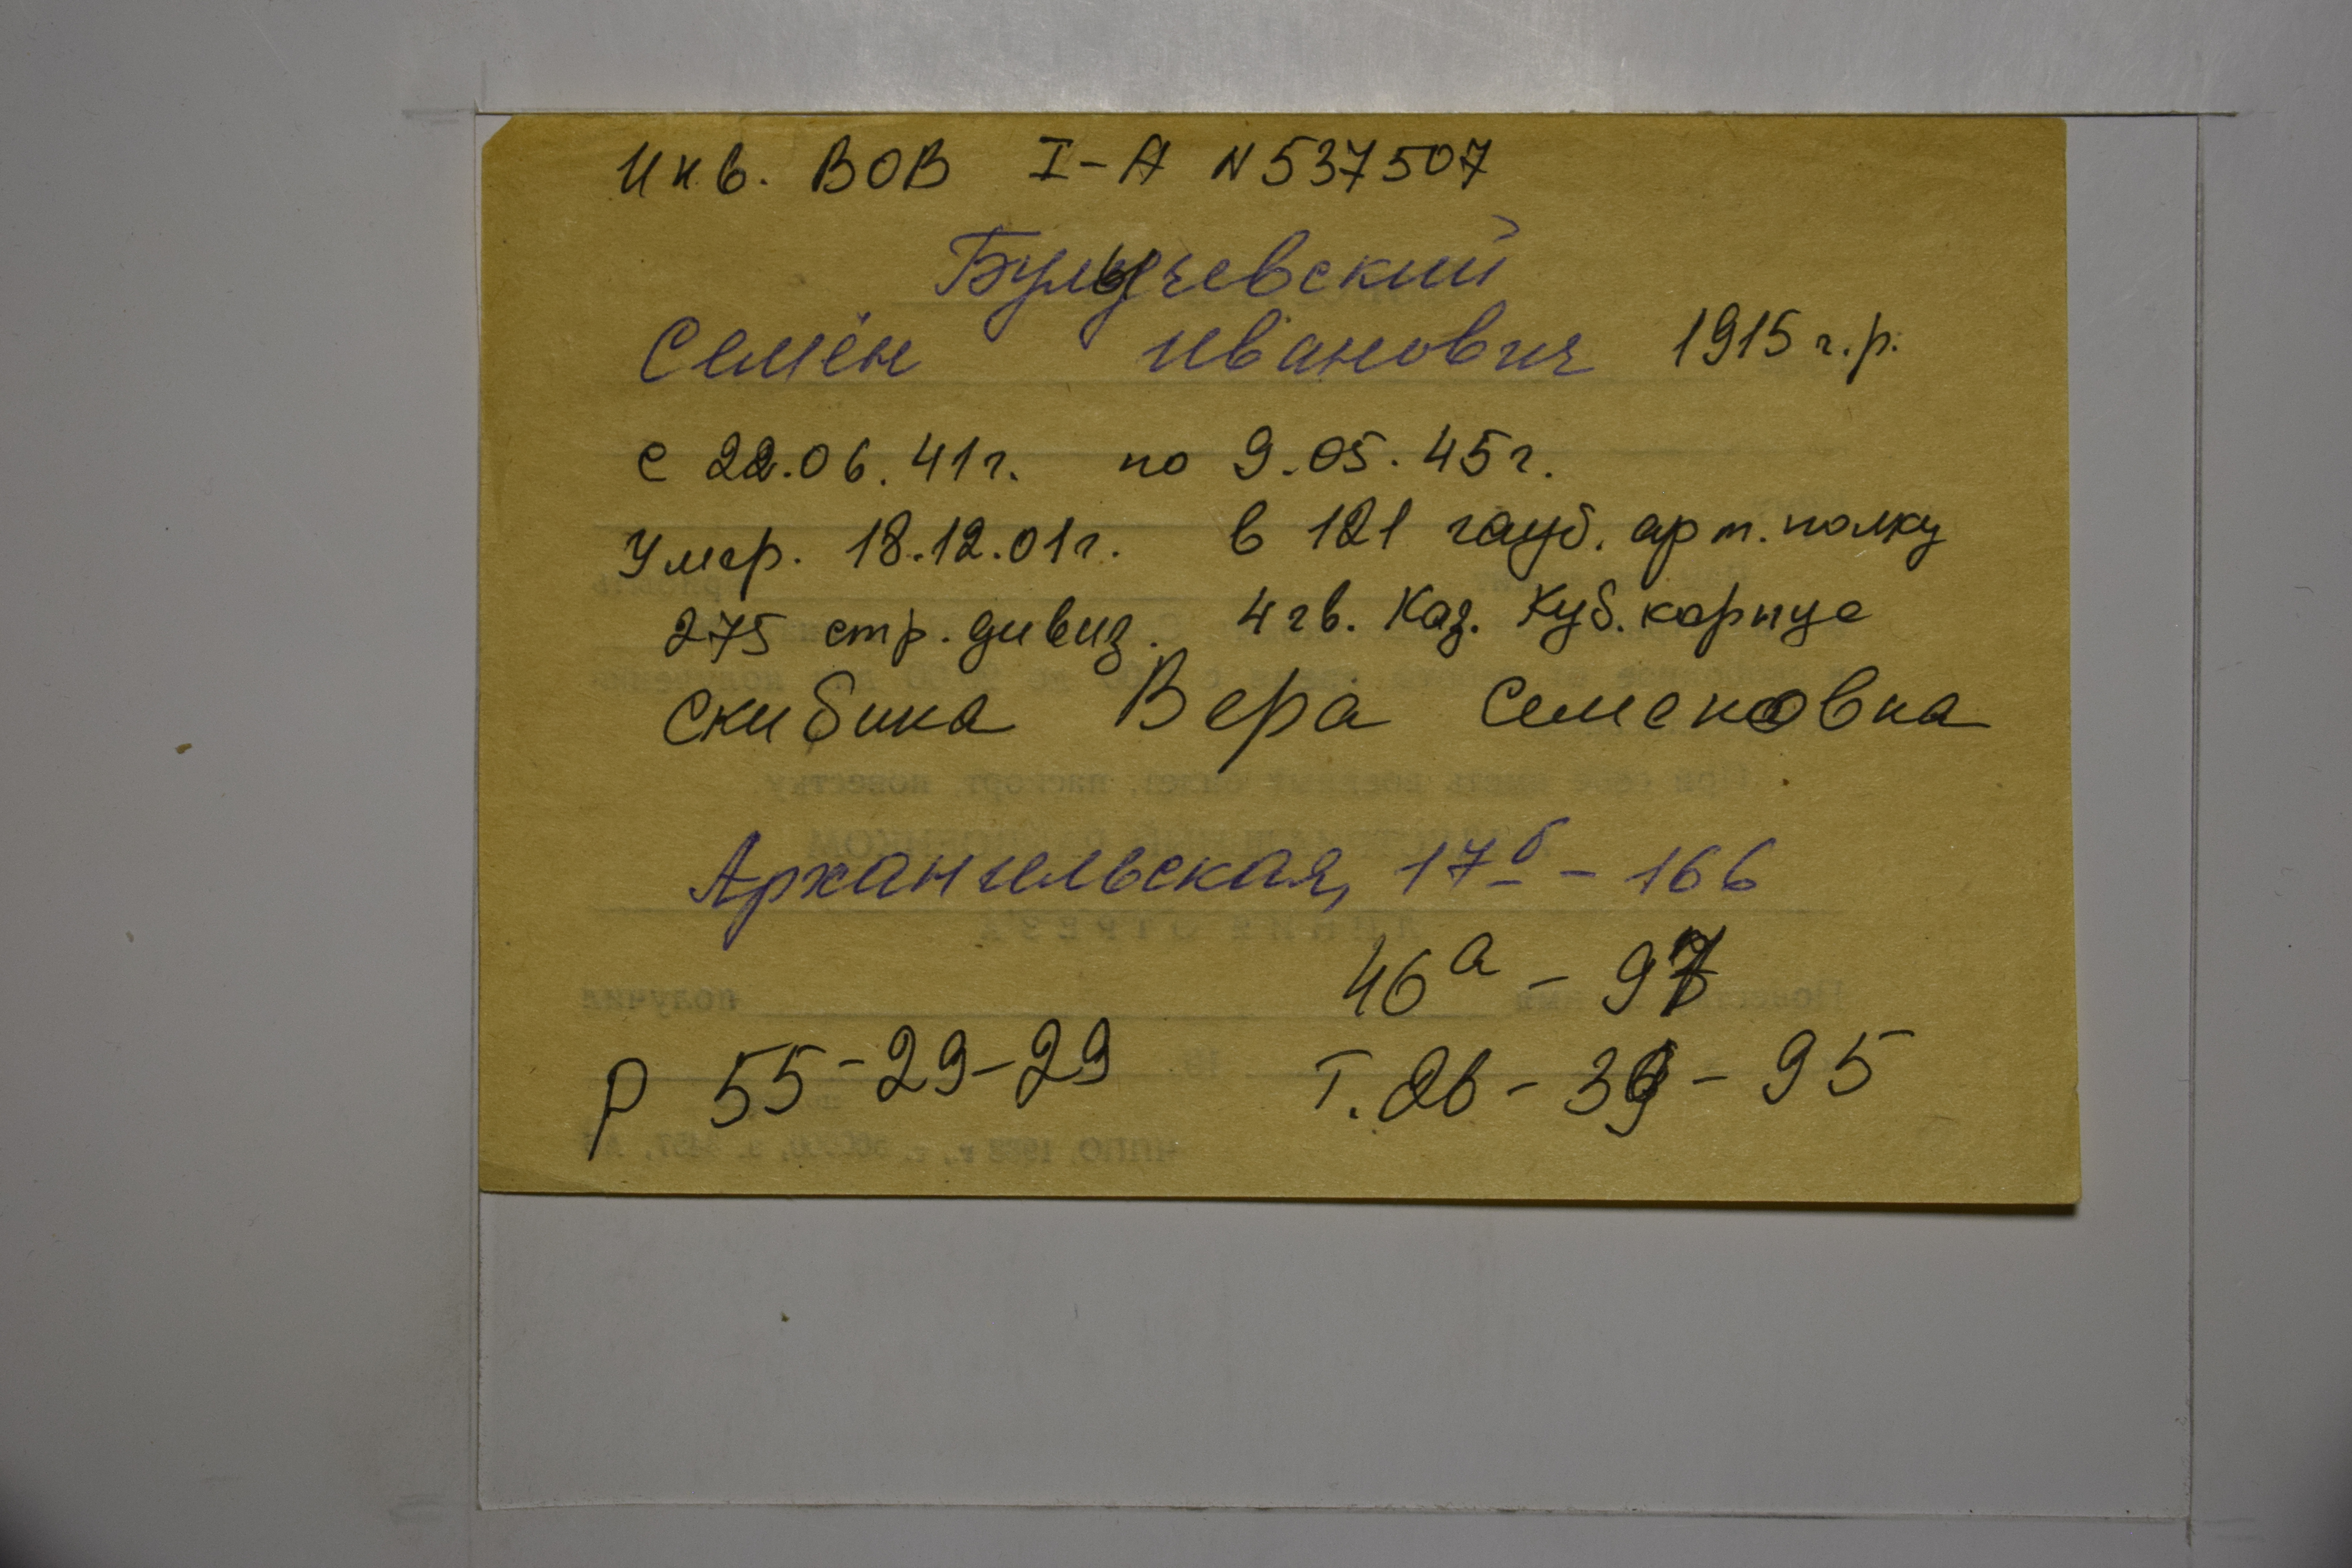 Инв. ВОВ I-А N 537507
Булычевский
Семён Иванович 1915 г.р.
с 22.06.41г. по 9.05.45г.
Умер. 18.12.01г. в 121 гауб. арт. полку
275 стр. дивиз. 4 гв. Каз. Куб. корпус
Скибина Вера Семеновна
Архангельская, 17б - 166
46а - 97
р 55-29-29 Т. 26-39-95